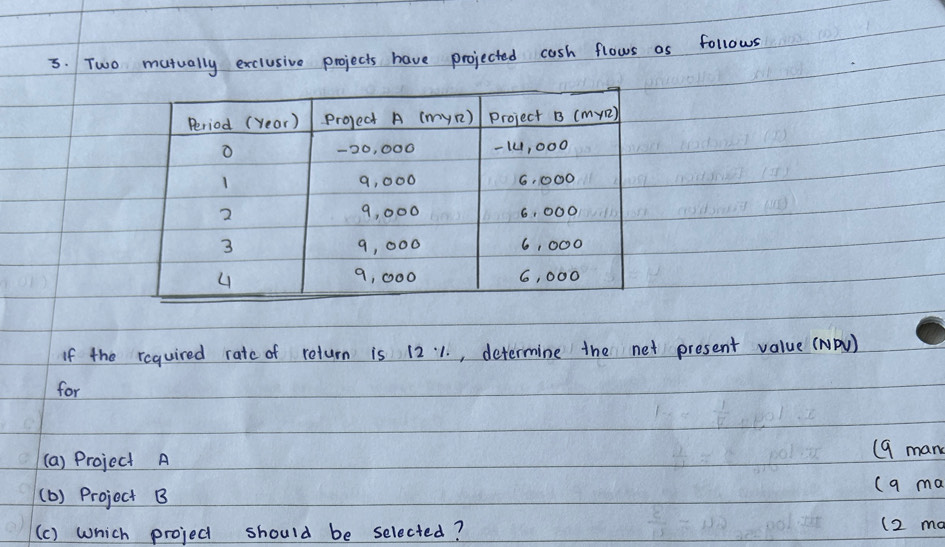 3. Two mutually exclusive projects have projected cash flows as follows
Period (Year) Project A (MYR) Project B (MYR)
0 -20,000 -14,000
1 9,000 6,000
2 9,000 6,000
3 9,000 6,000
4 9,000 6,000
If the required rate of return is 12 %, determine the net present value (NPV)
for
(a) Project A (9 man
(b) Project B (9 ma
(c) Which project should be selected? (2 ma